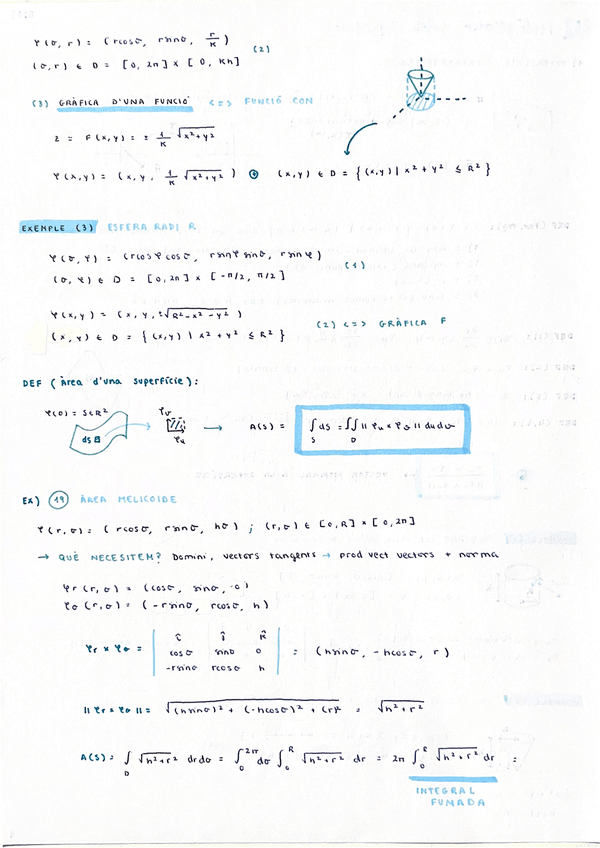 φ(σ, r) = (rcosσ, rsinσ, r/k)
(σ, r) ∈ D = [0, 2π] × [0, kh] (2)
(3) GRÀFICA D'UNA FUNCIÓ <=> FUNCIÓ CON
z = F(x,y) = ± 1/k √x²+y²
φ(x,y) = (x, y, 1/k √x²+y²) (x,y) ∈ D = {(x,y) | x²+y² ≤ R²}
EXEMPLE (3) ESFERA RADI R
φ(σ, φ) = (rcosφcosσ, rsinφsinσ, rsinφ)
(σ, φ) ∈ D = [0, 2π] × [-π/2, π/2] (1)
φ(x,y) = (x, y, ±√R²-x²-y²)
(x,y) ∈ D = {(x,y) | x²+y² ≤ R²} (2) <=> GRÀFICA F
DEF (Àrea d'una superfície):
φ(D) = S ∈ R²
ds
φσ
φu
→ A(S) = ∫S ds = ∫∫D ||φu × φσ|| dudσ
EX) 19 ÀREA HELICOIDE
φ(r, σ) = (rcosσ, rsinσ, hσ) ; (r, σ) ∈ [0,R] × [0, 2π]
→ QUÈ NECESSITEM? Domini, vectors tangents → prod vect vectors + norma
φr(r, σ) = (cosσ, sinσ, 0)
φσ(r, σ) = (-rsinσ, rcosσ, h)
î ĵ k̂
φr × φσ = cosσ sinσ 0 = (hsinσ, -hcosσ, r)
-rsinσ rcosσ h
||φr × φσ|| = √(hsinσ)² + (-hcosσ)² + (r)² = √h²+r²
A(S) = ∫D √h²+r² drdσ = ∫₀^2π dσ ∫₀^R √h²+r² dr = 2π ∫₀^R √h²+r² dr =
INTEGRAL
FUMADA